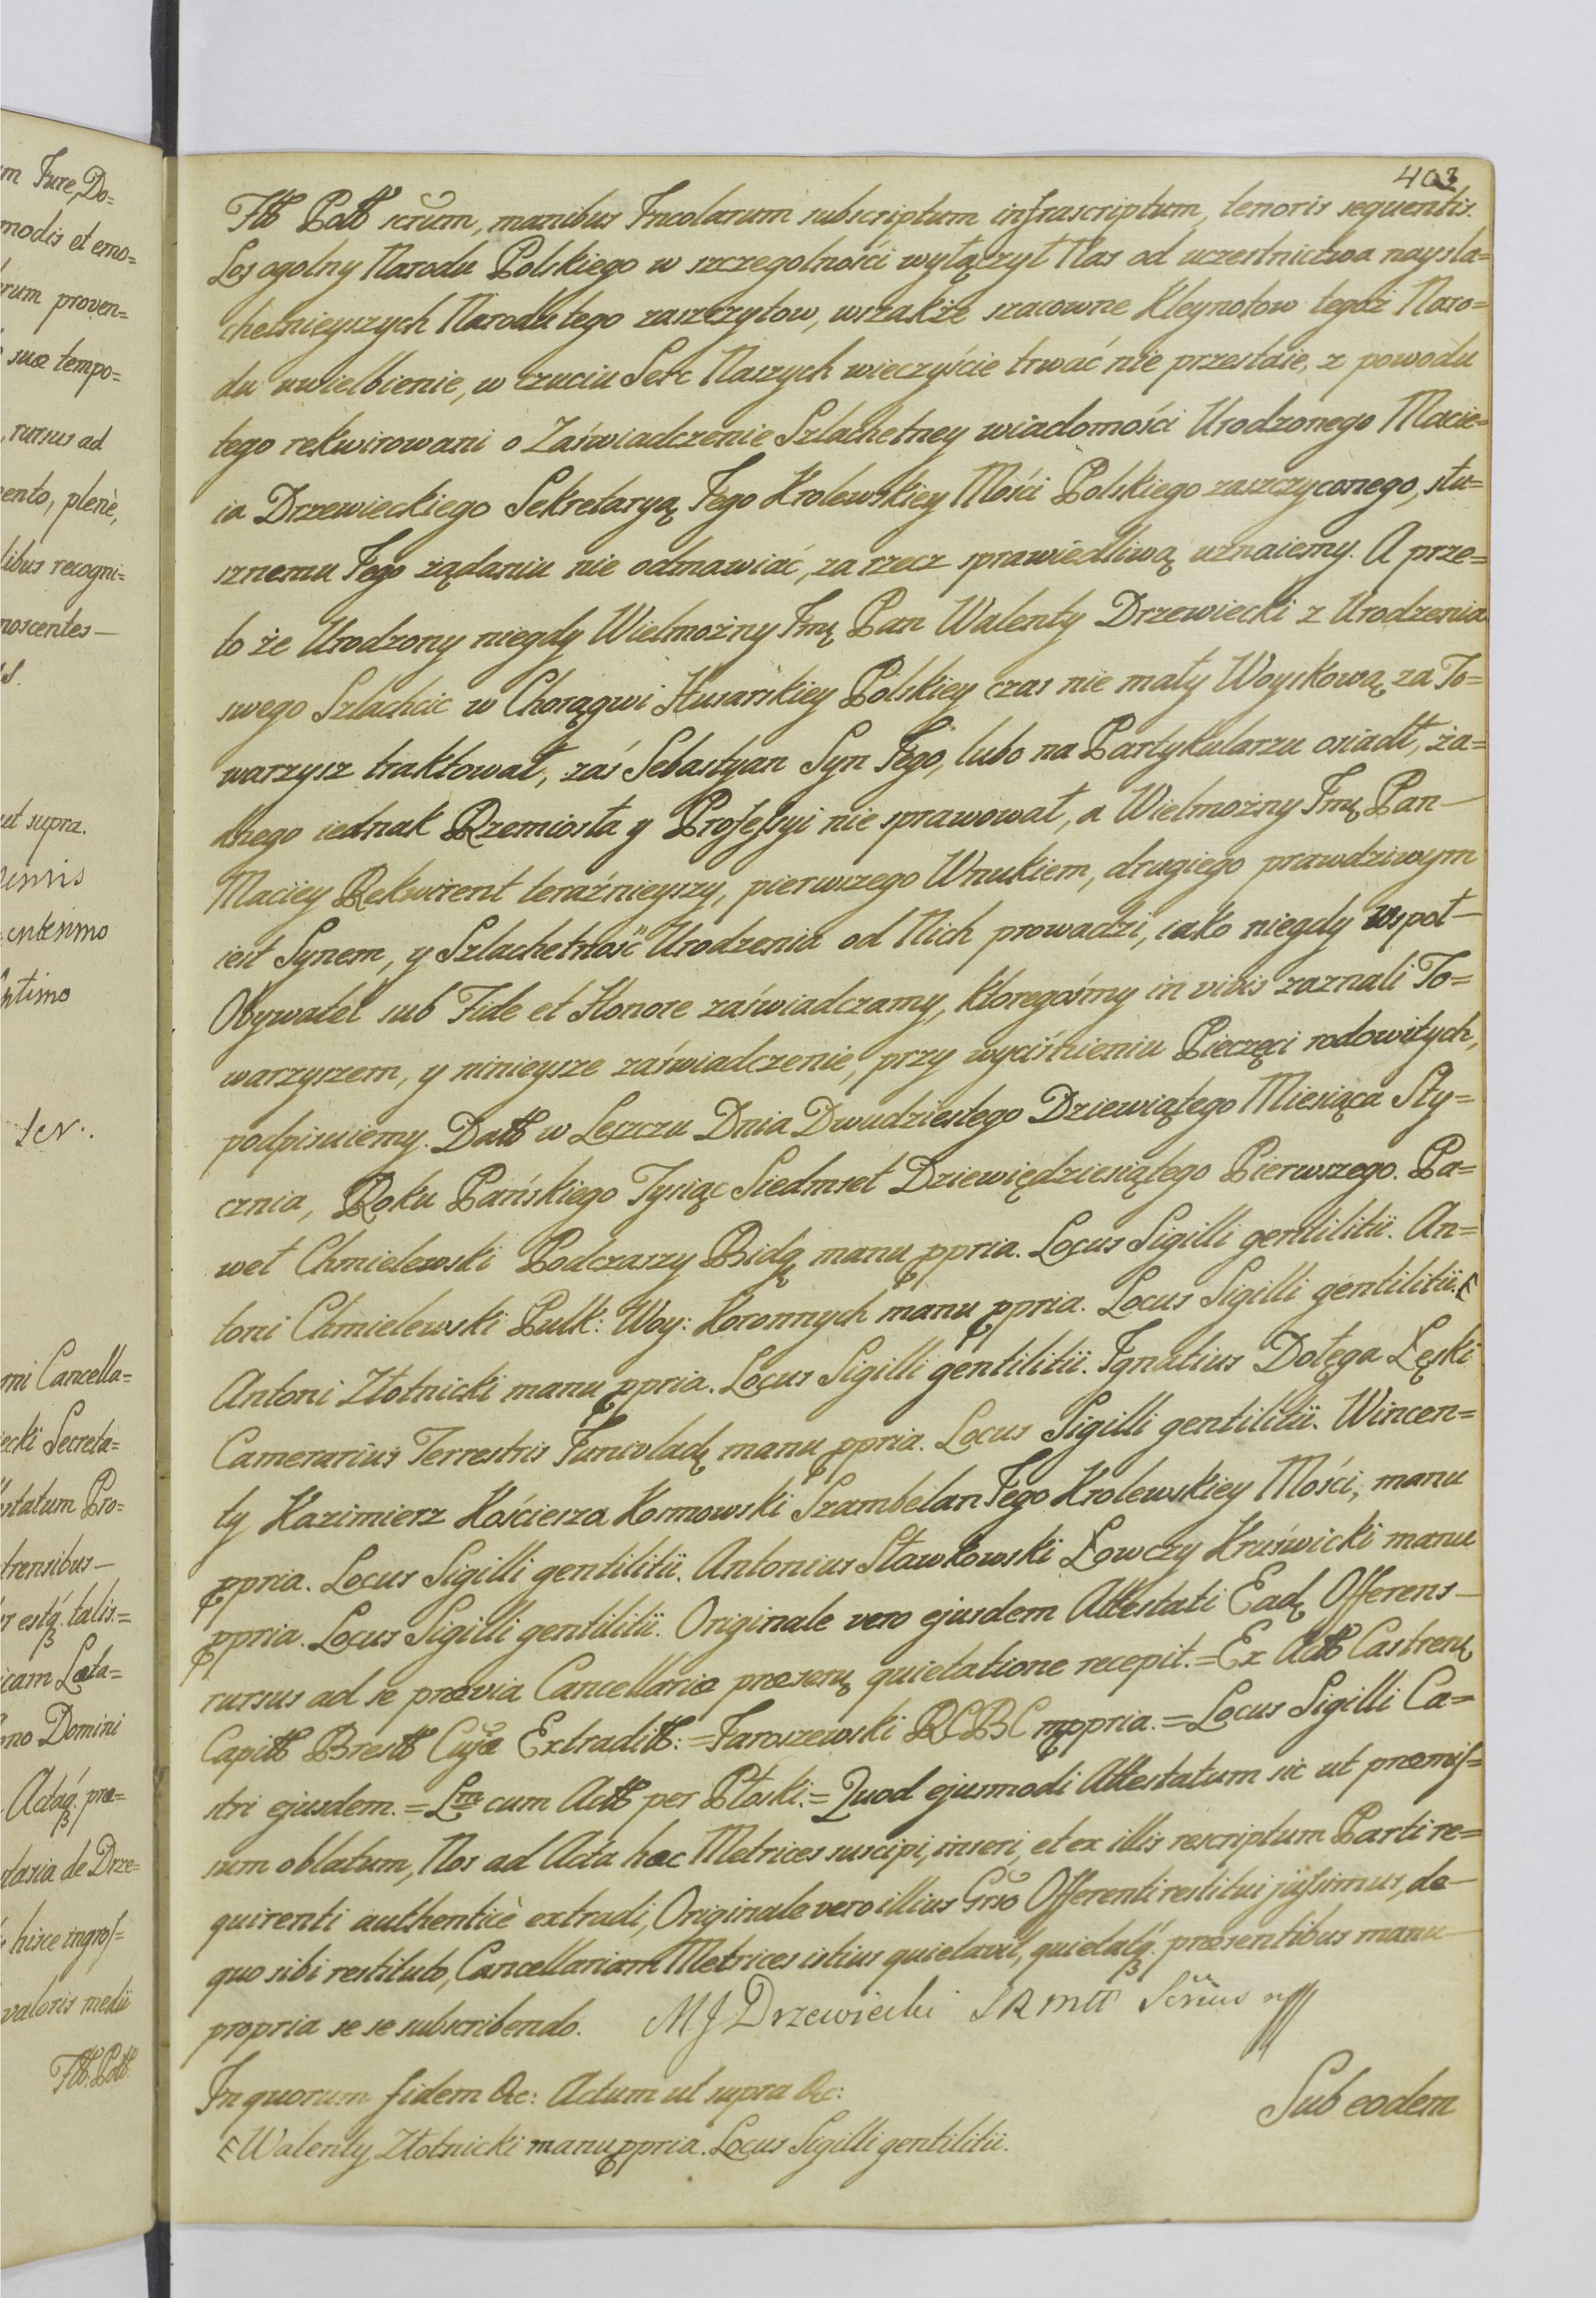 403
Itt Pott scrum, manibus Incolarum subscriptum infrascriptum, tenoris sequentis.
Los ogolny Narodu Polskiego w szczegolności wyłączył Nas od uczestnictwa naysla=
chetnieyszych Narodu tego zaszczytow, wszakże szacowne Kleynotow tegoż Naro=
du uwielbienie, w czuciu Serc Naszych wieczyście trwać nie przestaie, z powodu
tego rekwirowani o Zaświadczenie Szlachetney wiadomości Urodzonego Macie=
ia Drzewieckiego Sekretaryą Jego Krolewskiey Mości Polskiego zaszczyconego, słu=
sznemu Jego żądaniu nie odmawiać, za rzecz sprawiedliwą uznaiemy. A prze=
to że Urodzony niegdy Wielmożny Jmę Pan Walenty Drzewiecki z Urodzenia
swego Szlachcic w Chorągwi Husarskiey Polskiey czas nie mały Woyskową za To=
warzysz traktował, zaś Sebastyan Syn Jego, lubo na Partykularzu osiadł, ża=
dnego iednak Rzemiosła y Professyi nie sprawował, a Wielmożny Jmę Pan—
Maciey Rekwirent teraźnieyszy, pierwszego Wnukiem, drugiego prawdziwym
iest Synem, y Szlachetność Urodzenia od Nich prowadzi, iako niegdy wspoł—
Obywatel sub Fide et Honore zaświadczamy, ktoregośmy in vivis zaznali To=
warzyszem, y ninieysze zaświadczenie, przy wyciśnieniu Pieczęci rodowitych,
podpisuiemy. Datt w Leszczu Dnia Dwudziestego Dziewiątego Miesiąca Sty=
cznia, Roku Pańskiego Tysiąc Siedmset Dziewiędziesiątego Pierwszego. Pa=
weł Chmielewski Podczaszy Bidg manu ppria. Locus Sigilli gentilitii. An=
toni Chmielewski Pułk: Woy: Koronnych manu ppria. Locus Sigilli gentilitii.
Antoni Złotnicki manu ppria. Locus Sigilli gentilitii. Ignatius Dołęga Łęski
Camerarius Terrestris Junivladę manu ppria. Locus Sigilli gentilitii. Wincen=
ty Kazimierz Kościesza Kosmowski Szambelan Jego Krolewskiey Mości, manu
ppria. Locus Sigilli gentilitii. Antonius Sławkowski Łowczy Kruświcki manu
ppria. Locus Sigilli gentilitii. Originale vero ejusdem Attestati Eadę Offerens—
rursus ad se prævia Cancellariæ præsenę quietatione recepit.=Ex Actt Castrenę
Capitt Brestt Cujæ Extraditt:=Jaroszewski RCBC mppria.=Locus Sigilli Ca=
stri ejusdem.=Lm cum Actt per Płoski.=Quod ejusmodi Attestatum sic ut præmis=
sum oblatum, Nos ad Acta hæc Metrices suscipi, inseri, et ex illis rescriptum Parti re=
quirenti authenticè extradi, Originale vero illius Grso Offerenti restitui jussimus, de
quo sibi restituto, Cancellariam Metrices istius quietavit, quietatq. præsentibus manu—
propria se se subscribendo. M J Drzewiecki
In quorum fidem &c: Actum ut supra &c:
Walenty Złotnicki manu ppria. Locus Sigilli gentilitii.
Sub eodem